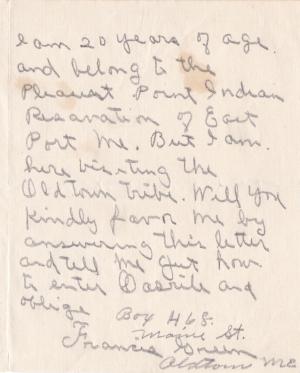 I am 20 years of age.
and belong to the
Pleasent Point Indian
Resarvation of East
Port Me. But I am.
here visiting the
Oldtown tribe. Will you
kindly favor me by
answering this letter
and tell me gut how
to enter Caslile and
oblige
Box 468.
Maine St.
Francis
Oldtown ME